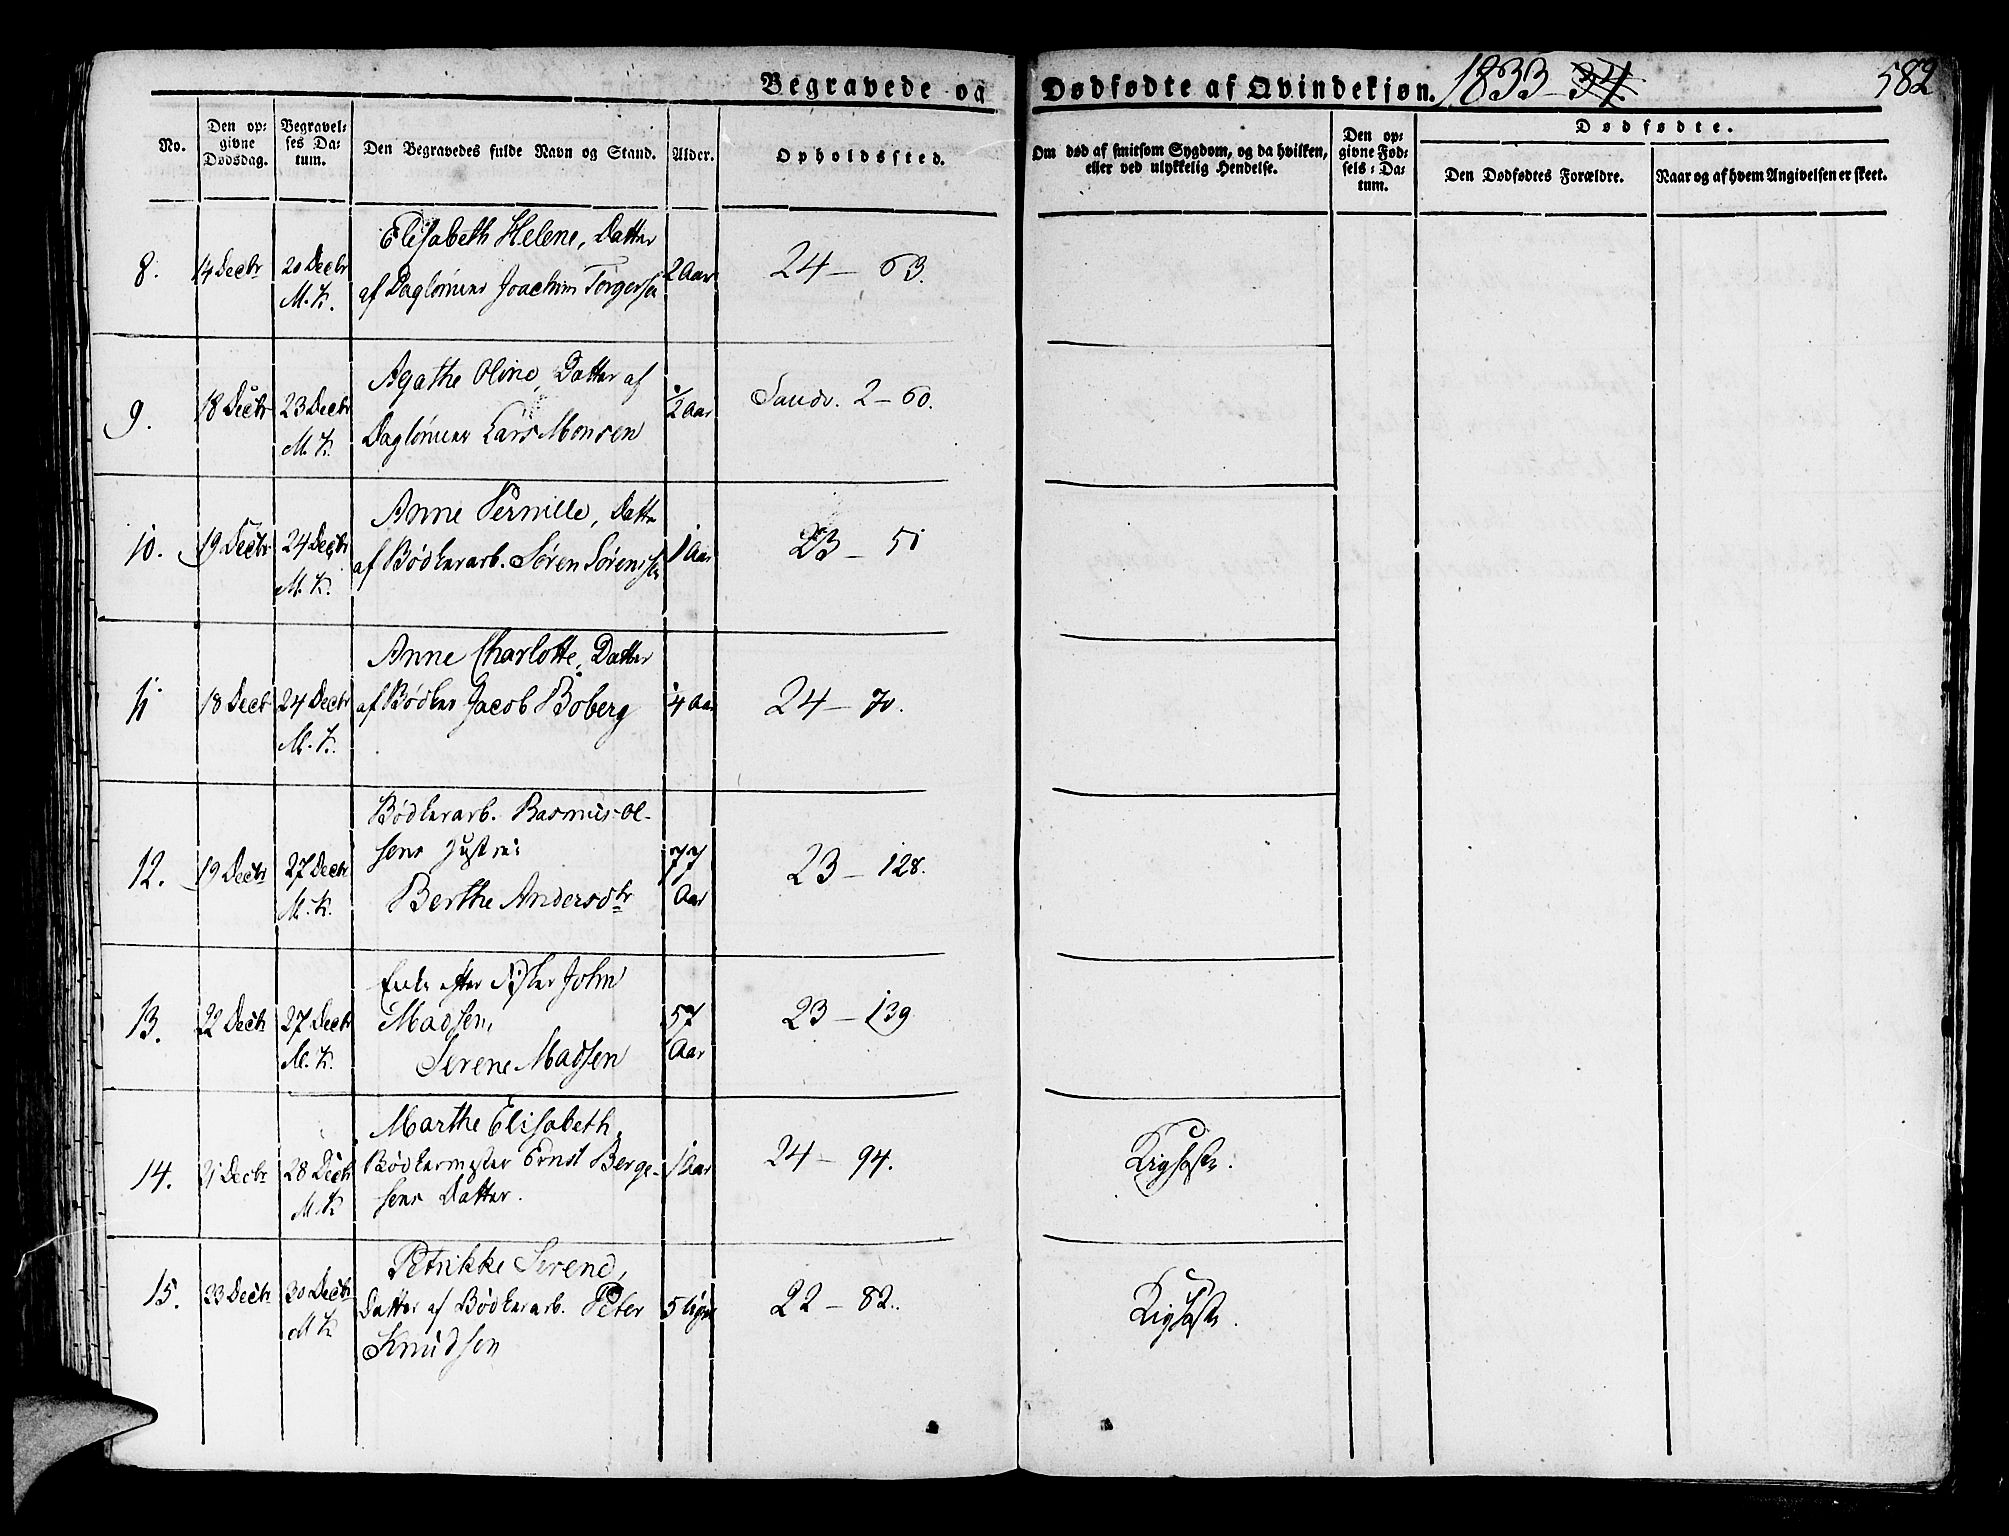 Begravede og Dødfødte af Qvindekjøn. 1833 – 34.
582
No.
Den op-
givne
Dødsdag.
Begravel-
ses Da-
tum.
Den Begravedes fulde Navn og Stand.
Alder.
Opholdssted.
Om død af smitsom Sygdom, og da hvilken,
eller ved ulykkelig Hendelse.
Den op-
givne Fød-
sels-Da-
tum.
Dødfødte.
Den Dødfødtes Forældre.
Naar og af hvem Angivelsen er skeet.
8. 14 Decbr 20 Decbr M. K.
Elisabeth Helene, Datter
af Daglønner Joachim Torgersen
2 Aar 24 – 63.
9. 18 Decbr 23 Decbr M. K.
Agathe Oline, Datter af
Daglønner Lars Monsen
1/2 Aar Sandv. 2 – 60.
10. 19 Decbr 24 Decbr M. K.
Anne Pernille, Datter
af Bødkerarb. Søren Sørensen
1 Aar 23 – 51
11 18 Decbr 24 Decbr M. K.
Anne Charlotte, Datter
af Bødker Jacob Boberg
1/4 Aar 24 – 70.
12. 19 Decbr 27 Decbr M. K.
Bødkerarb. Rasmus Ol-
sens Hustrue
Berthe Andersdtr
77 Aar 23 – 128.
13. 22 Decbr 27 Decbr M. K.
Enke efter Fisker John
Madsen,
Serene Madsen
57 Aar 23 – 139
14. 21 Decbr 28 Decbr M. K.
Marthe Elisabeth,
Bødkermester Ernst Berge-
sens Datter.
1 Aar 24 – 94. Kighoste.
15. 23 Decbr 30 Decbr M K
Petrikke Serene,
Datter af Bødkerarb. Peter
Knudsen
5 Uger 22 – 82. Kighoste.